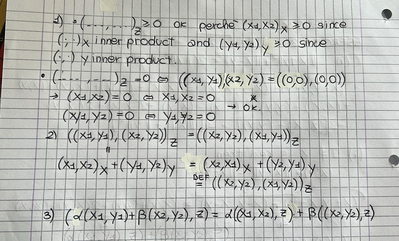 1) • (-----, -----)_Z ≥ 0 OK perché (x1, x2)_X ≥ 0 since
(·,·)_X inner product and (y1, y2)_Y ≥ 0 since
(·,·)_Y inner product.
• (-----, -----)_Z = 0 ⇔ ((x1, y1), (x2, y2) = ((0,0), (0,0))
→ (x1, x2) = 0 ⇔ x1, x2 = 0
→ OK.
(y1, y2) = 0 ⇔ y1, y2 = 0
2) ((x1, y1), (x2, y2))_Z = ((x2, y2), (x1, y1))_Z
||
(x1, x2)_X + (y1, y2)_Y = (x2, x1)_X + (y2, y1)_Y
DEF
= ((x2, y2), (x1, y2))_Z
3) (α(x1, y1) + β(x2, y2), z) = α((x1, x2), z) + β((x2, y2), z)